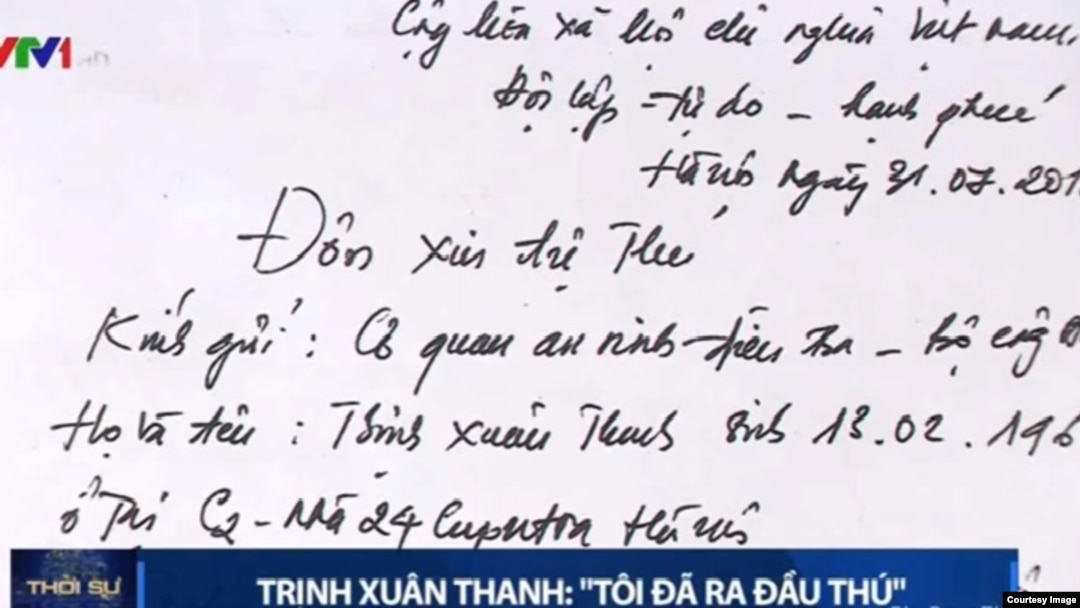 VTV1
Cộng hòa xã hội chủ nghĩa Việt nam.
Độc lập - tự do - hạnh phúc
Hà nội ngày 31.07.201
Đơn xin tự Thú
Kính gửi: Cơ quan an ninh điều tra - Bộ công
Họ và tên: Trịnh xuân Thanh sinh 13.02.196
ở Tại C2 - nhà 24 Ciputra Hà nội
THỜI SỰ
TRỊNH XUÂN THANH: "TÔI ĐÃ RA ĐẦU THÚ"
Courtesy Image